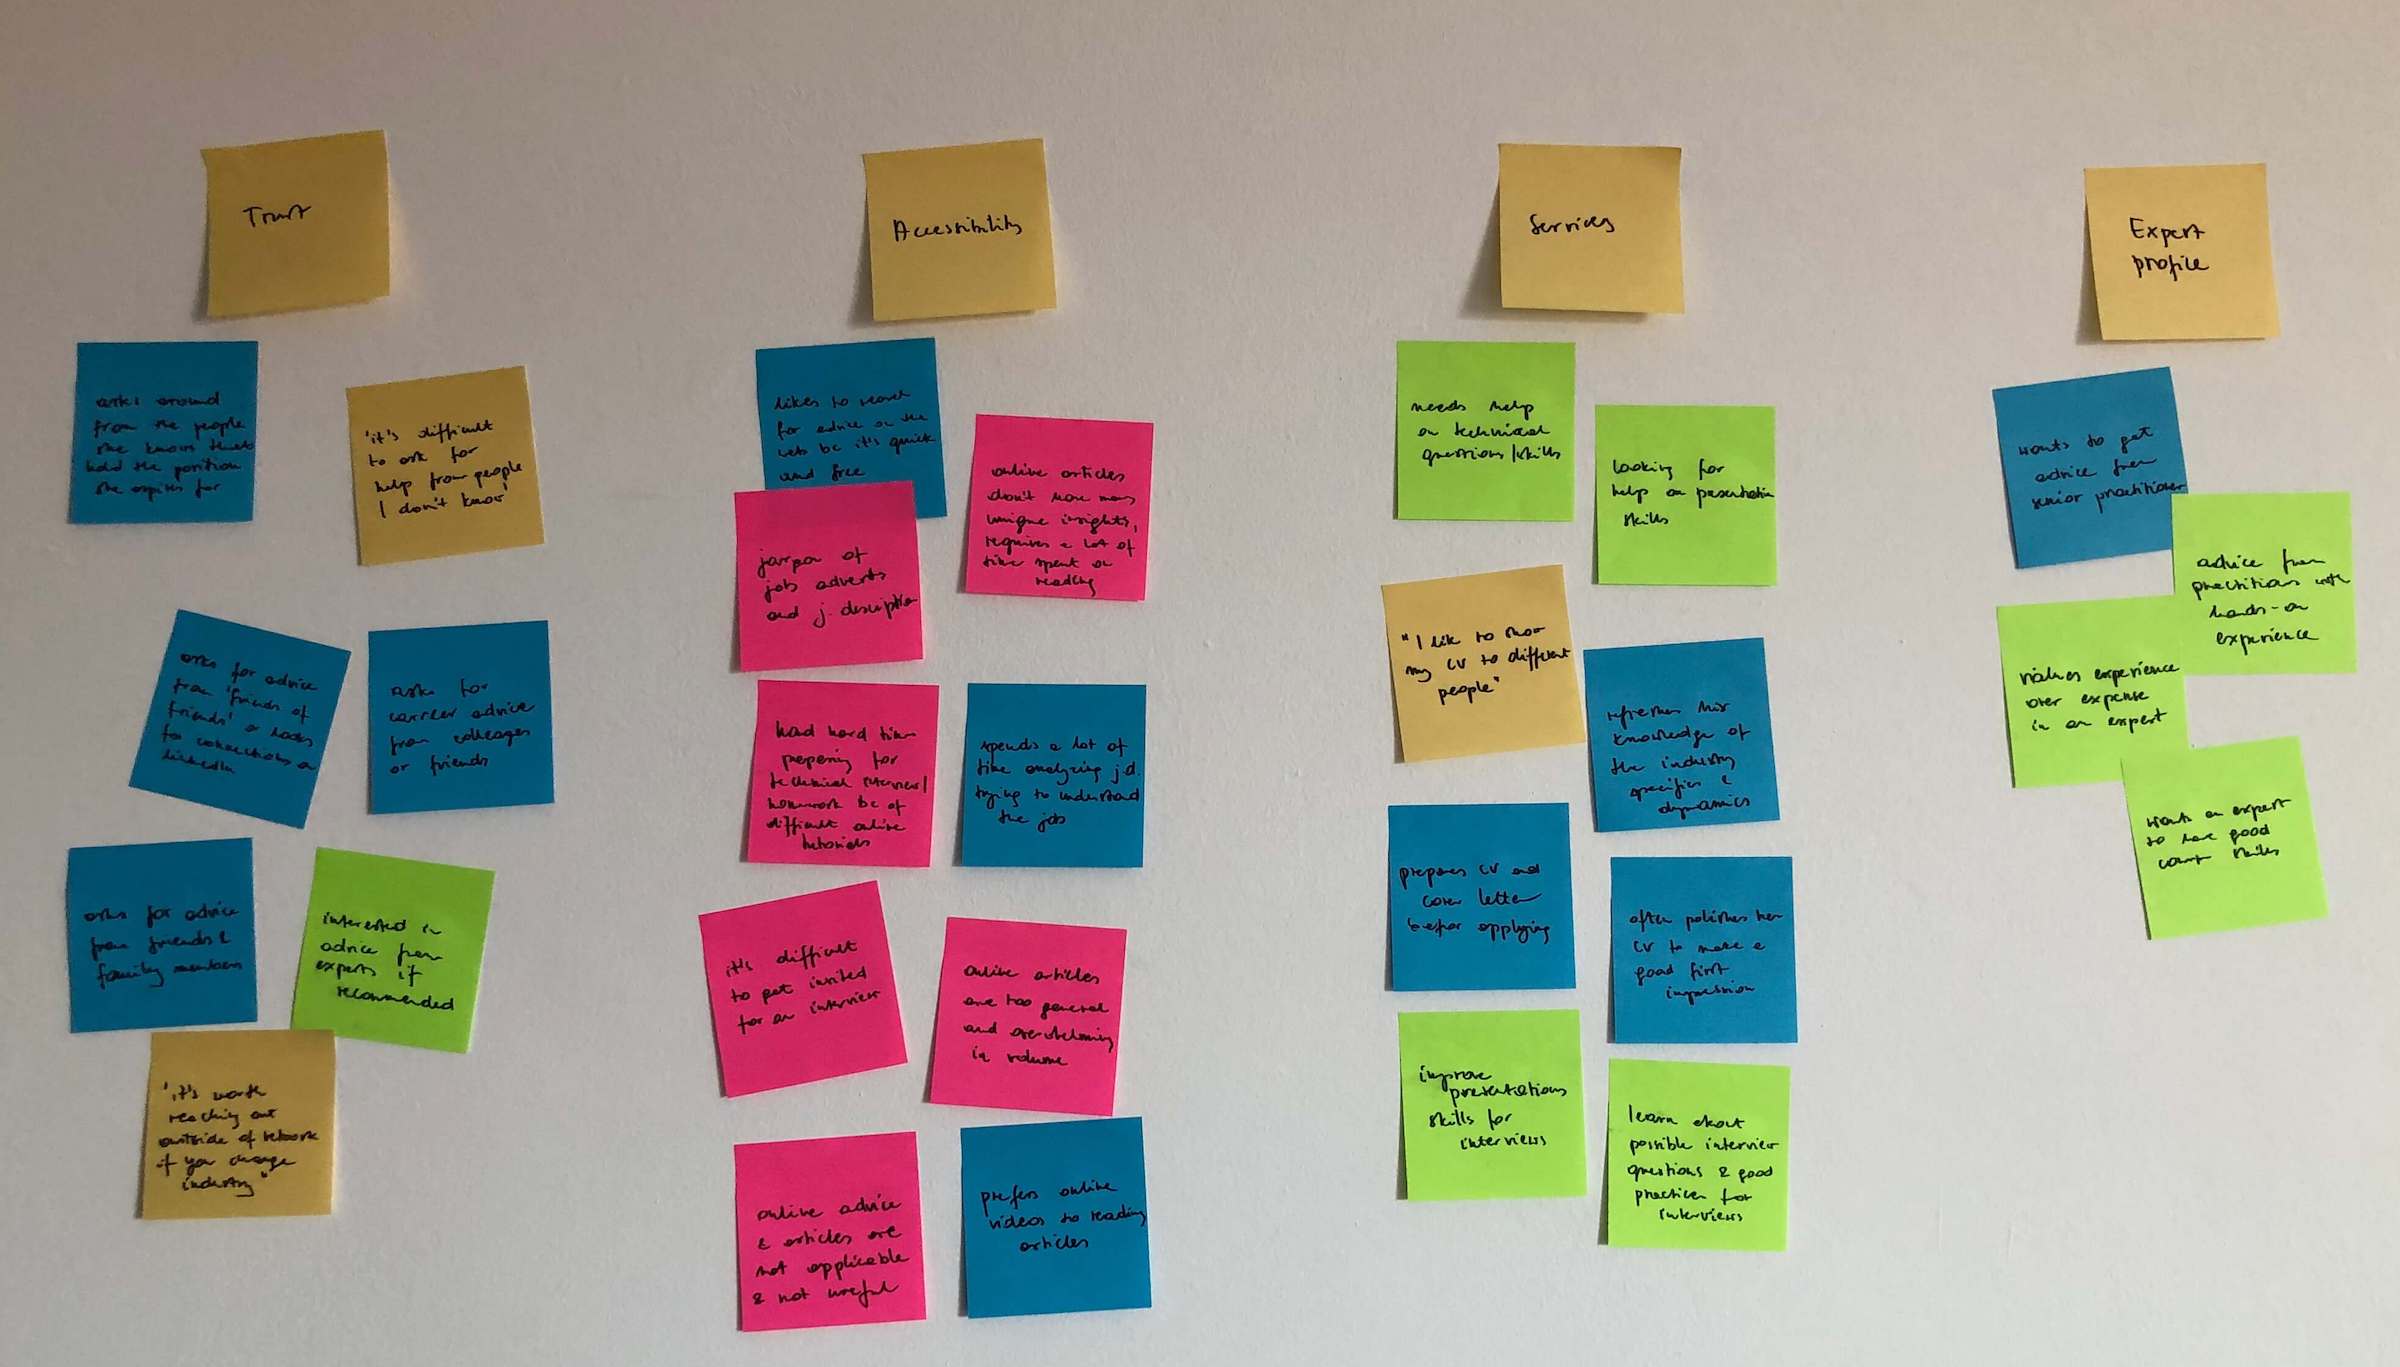 Trust
asks around
from the people
she knows that
hold the position
she aspires for
'it's difficult
to ask for
help from people
I don't know'
asks for advice
from 'friends of
friends' or looks
for connections on
LinkedIn
asks for
carreer advice
from colleages
or friends
asks for advice
from friends &
family members
interested in
advice from
experts if
recommended
'it's worth
reaching out
outside of network
if you change
industry"
Accessibility
likes to search
for advice on the
web bc it's quick
and free
online articles
don't have many
unique insights,
requires a lot of
time spent on
reading
jargon of
jobs adverts
and j. description
had hard time
preparing for
technical interview/
homework bc of
difficult online
tutorials
spends a lot of
time analyzing j.d.
trying to understand
the job
it's difficult
to get invited
for an interview
online articles
are too general
and overwhelming
in volume
online advice
& articles are
not applicable
& not useful
prefers online
videos to reading
articles
Services
needs help
on technical
questions/skills
looking for
help on presentation
skills
"I like to show
my CV to different
people"
refreshes his
knowledge of
the industry
specifics &
dynamics
prepares CV and
cover letter
before applying
often polishes her
CV to make a
good first
impression
improve
presentations
skills for
interviews
learn about
possible interview
questions & good
practices for
interviews
Expert
profile
wants to get
advice from
senior practitioner
advice from
practitions with
hands-on
experience
values experience
over expense
in an expert
wants an expert
to have good
skills